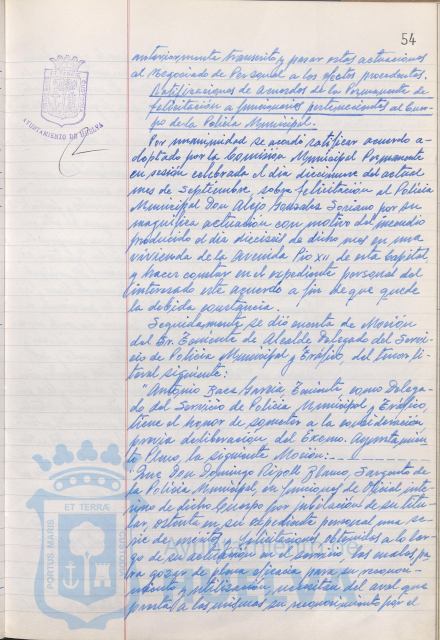 54
anteriormente transcrito y pasar estas actuaciones
al Negociado de Personal a los efectos procedentes.
Ratificaciones de acuerdos de la Permanente de
felicitación a funcionarios pertenecientes al Cuer-
po de la Policía Municipal.
AYUNTAMIENTO DE HUELVA
Por unanimidad se acordó ratificar acuerdo a-
doptado por la Comisión Municipal Permanente
en sesión celebrada el día diecinueve del actual
mes de Septiembre, sobre felicitación al Policía
Municipal Don Alejo Gonzalez Soriano por su
magnífica actuación con motivo del incendio
producido el día dieciseis de dicho mes en una
vivienda de la Avenida Pío XII, de esta Capital,
y hacer constar en el expediente personal del
interesado este acuerdo a fin de que quede
la debida constancia.
Seguidamente se dió cuenta de Moción
del Sr. Teniente de Alcalde Delegado del Servi-
cio de Policía Municipal y Tráfico, del tenor li-
teral siguiente:
"Antonio Baca García, Teniente como Delega-
do del Servicio de Policía Municipal y Tráfico,
tiene el honor de someter a la consideración
previa deliberación, del Excmo. Ayuntamien
to Pleno, la siguiente Moción:
Que Don Domingo Ripoll Blanco, Sargento de
la Policía Municipal, en funciones de Oficial inte
rino de dicho Cuerpo por jubilación de su titu-
lar, ostenta en su expediente personal una se-
rie de méritos y felicitaciones obtenidos a lo lar-
go de su actuación en el servicio, los cuales, pa
ra gozar de plena eficacia para su reconoci-
miento y utilización, necesitan del aval que
presta a los mismos su reconocimiento por el
PORTUS MARIS ET TERRAE CUSTODIA